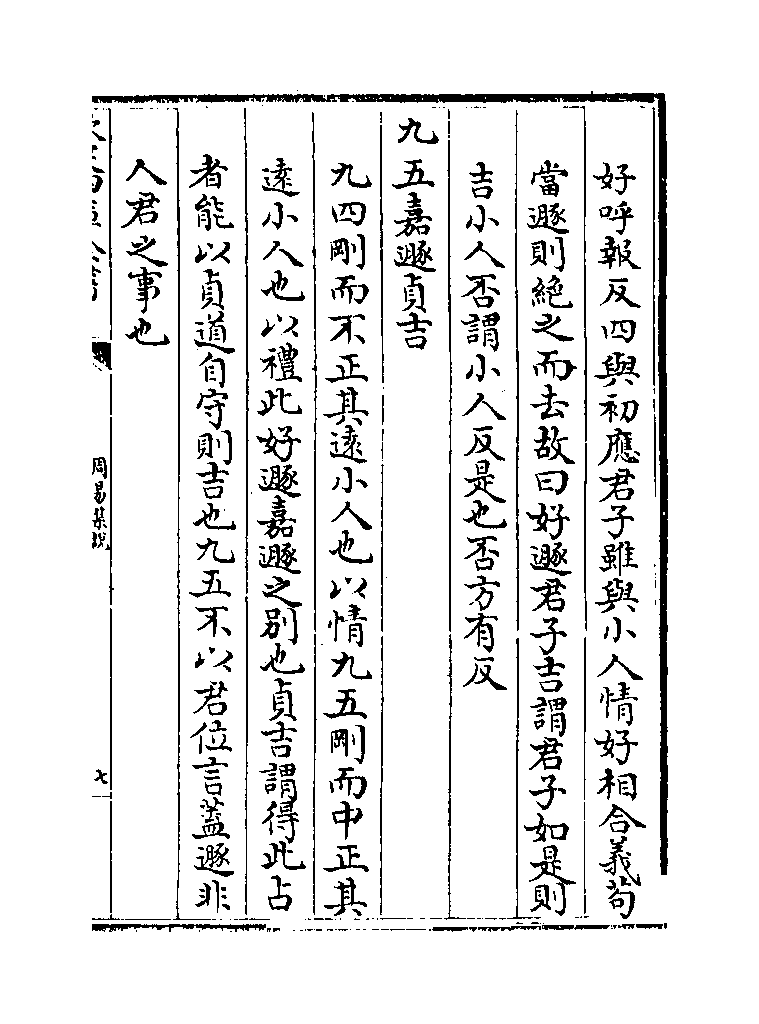 好呼報反四與初應君子雖與小人情好相合義苟
當遯則絶之而去故曰好遯君子吉謂君子如是則
吉小人否謂小人反是也否方有反
九五嘉遯貞吉
九四剛而不正其逺小人也以情九五剛而中正其
逺小人也以禮此好遯嘉遯之别也貞吉謂得此占
者能以貞道自守則吉也九五不以君位言蓋遯非
人君之事也
周易集説
七